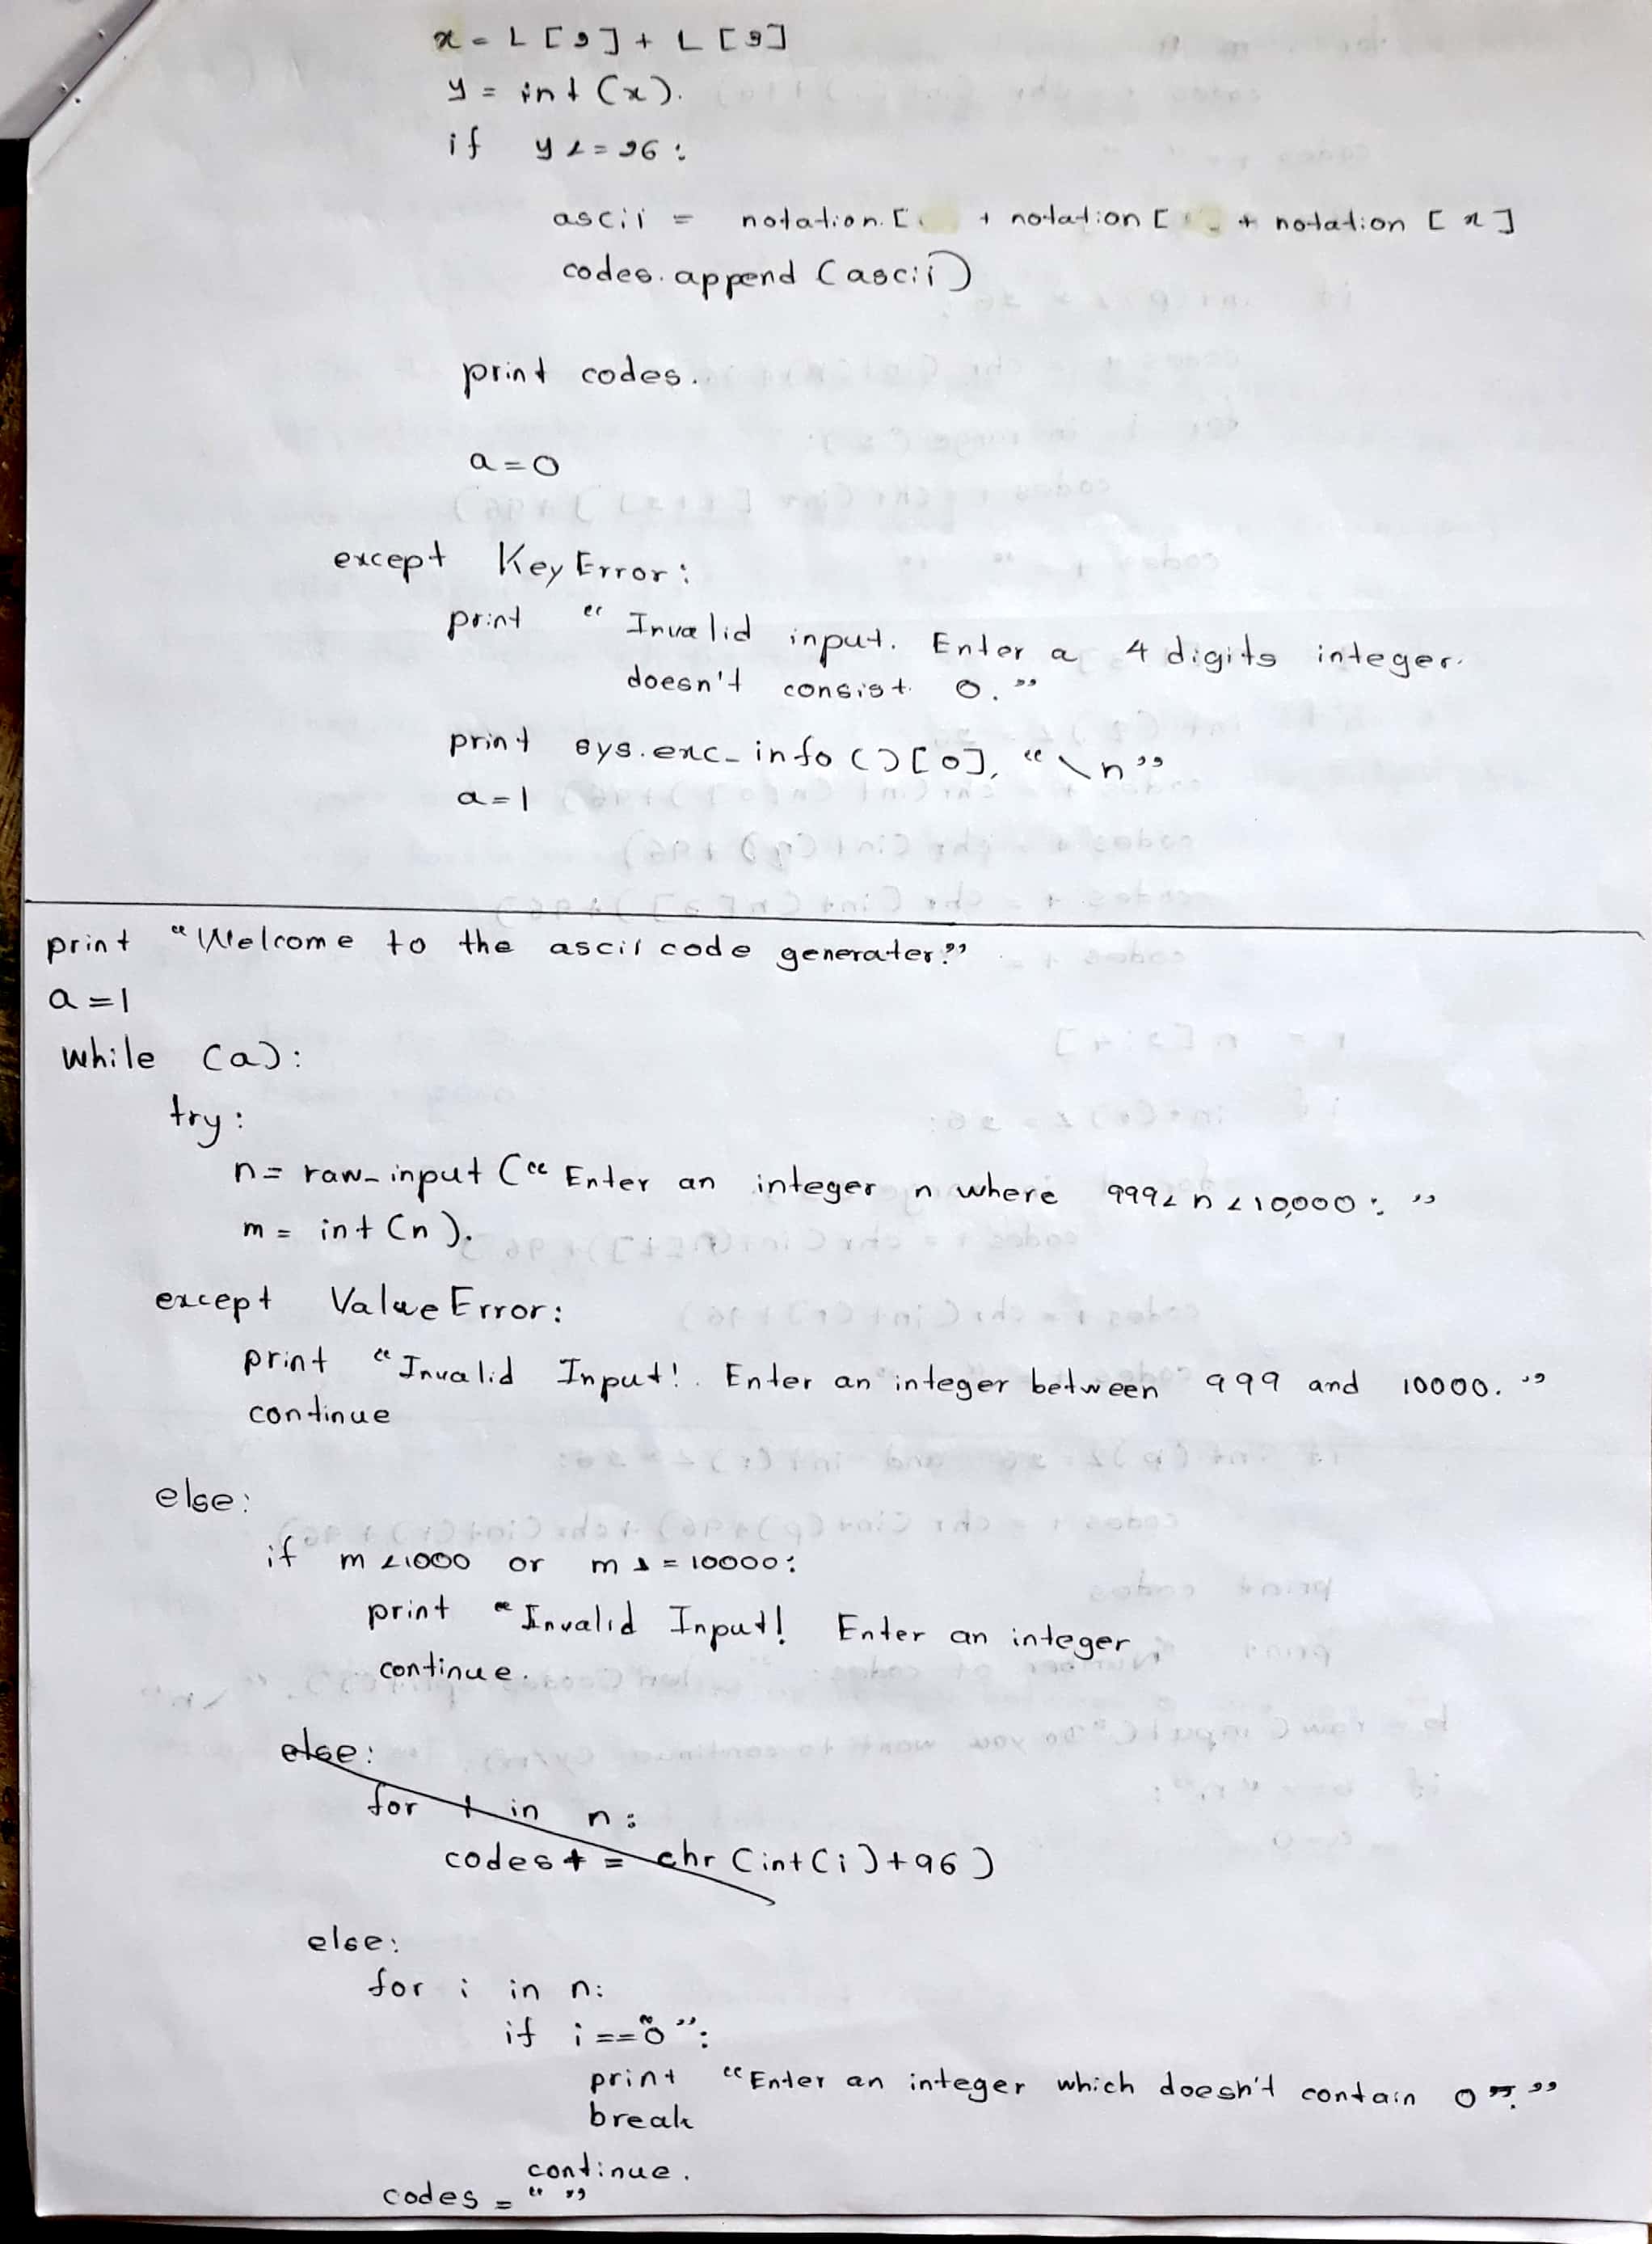 x = L [2] + L [3]
y = int (x).
if y <= 26 :
ascii = notation. [ + notation [ + notation [x]
codes. append (ascii)
print codes.
a = 0
except KeyError :
print " Invalid input. Enter a 4 digits integer.
doesn't consist 0. "
print sys.exc_info () [0], " \n "
a = 1
print "Welcome to the ascii code generater!"
a = 1
while (a):
try:
n = raw_input (" Enter an integer n where 999< n <10,000 : "
m = int (n).
except ValueError:
print "Invalid Input! . Enter an integer between 999 and 10000. "
continue
else:
if m <1000 or m >= 10000:
print "Invalid Input! Enter an integer
continue.
else:
for in n:
codes + = chr (int (i) +96 )
else:
for i in n:
if i == "0":
print "Enter an integer which doesn't contain 0 . "
break
continue.
codes = " "